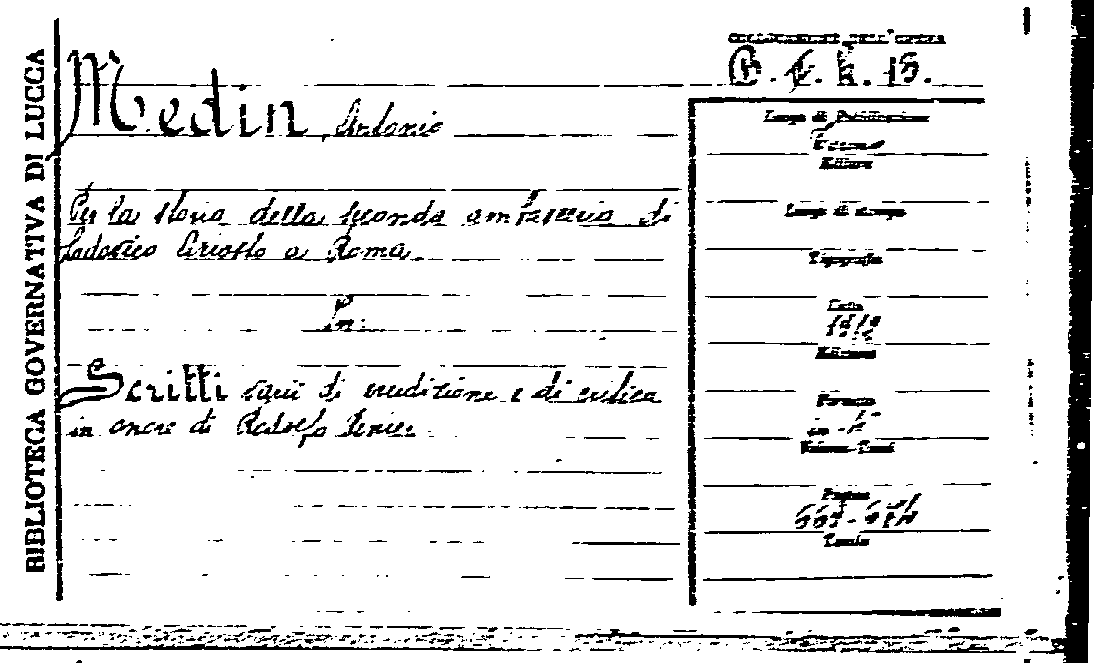 BIBLIOTECA GOVERNATIVA DI LUCCA
COLLOCAZIONE DELL'OPERA
Medin, Antonio
Luogo di Pubblicazione
Torino
Editore
Per la storia della seconda ambasceria di
Lodovico Ariosto a Roma.
Luogo di stampa
Tipografia
In:
Data
1912
Edizione
Scritti varii di erudizione e di critica
in onore di Rodolfo Renier.
Formato
in-4°
Volume-Tomi
Pagine
Tavole